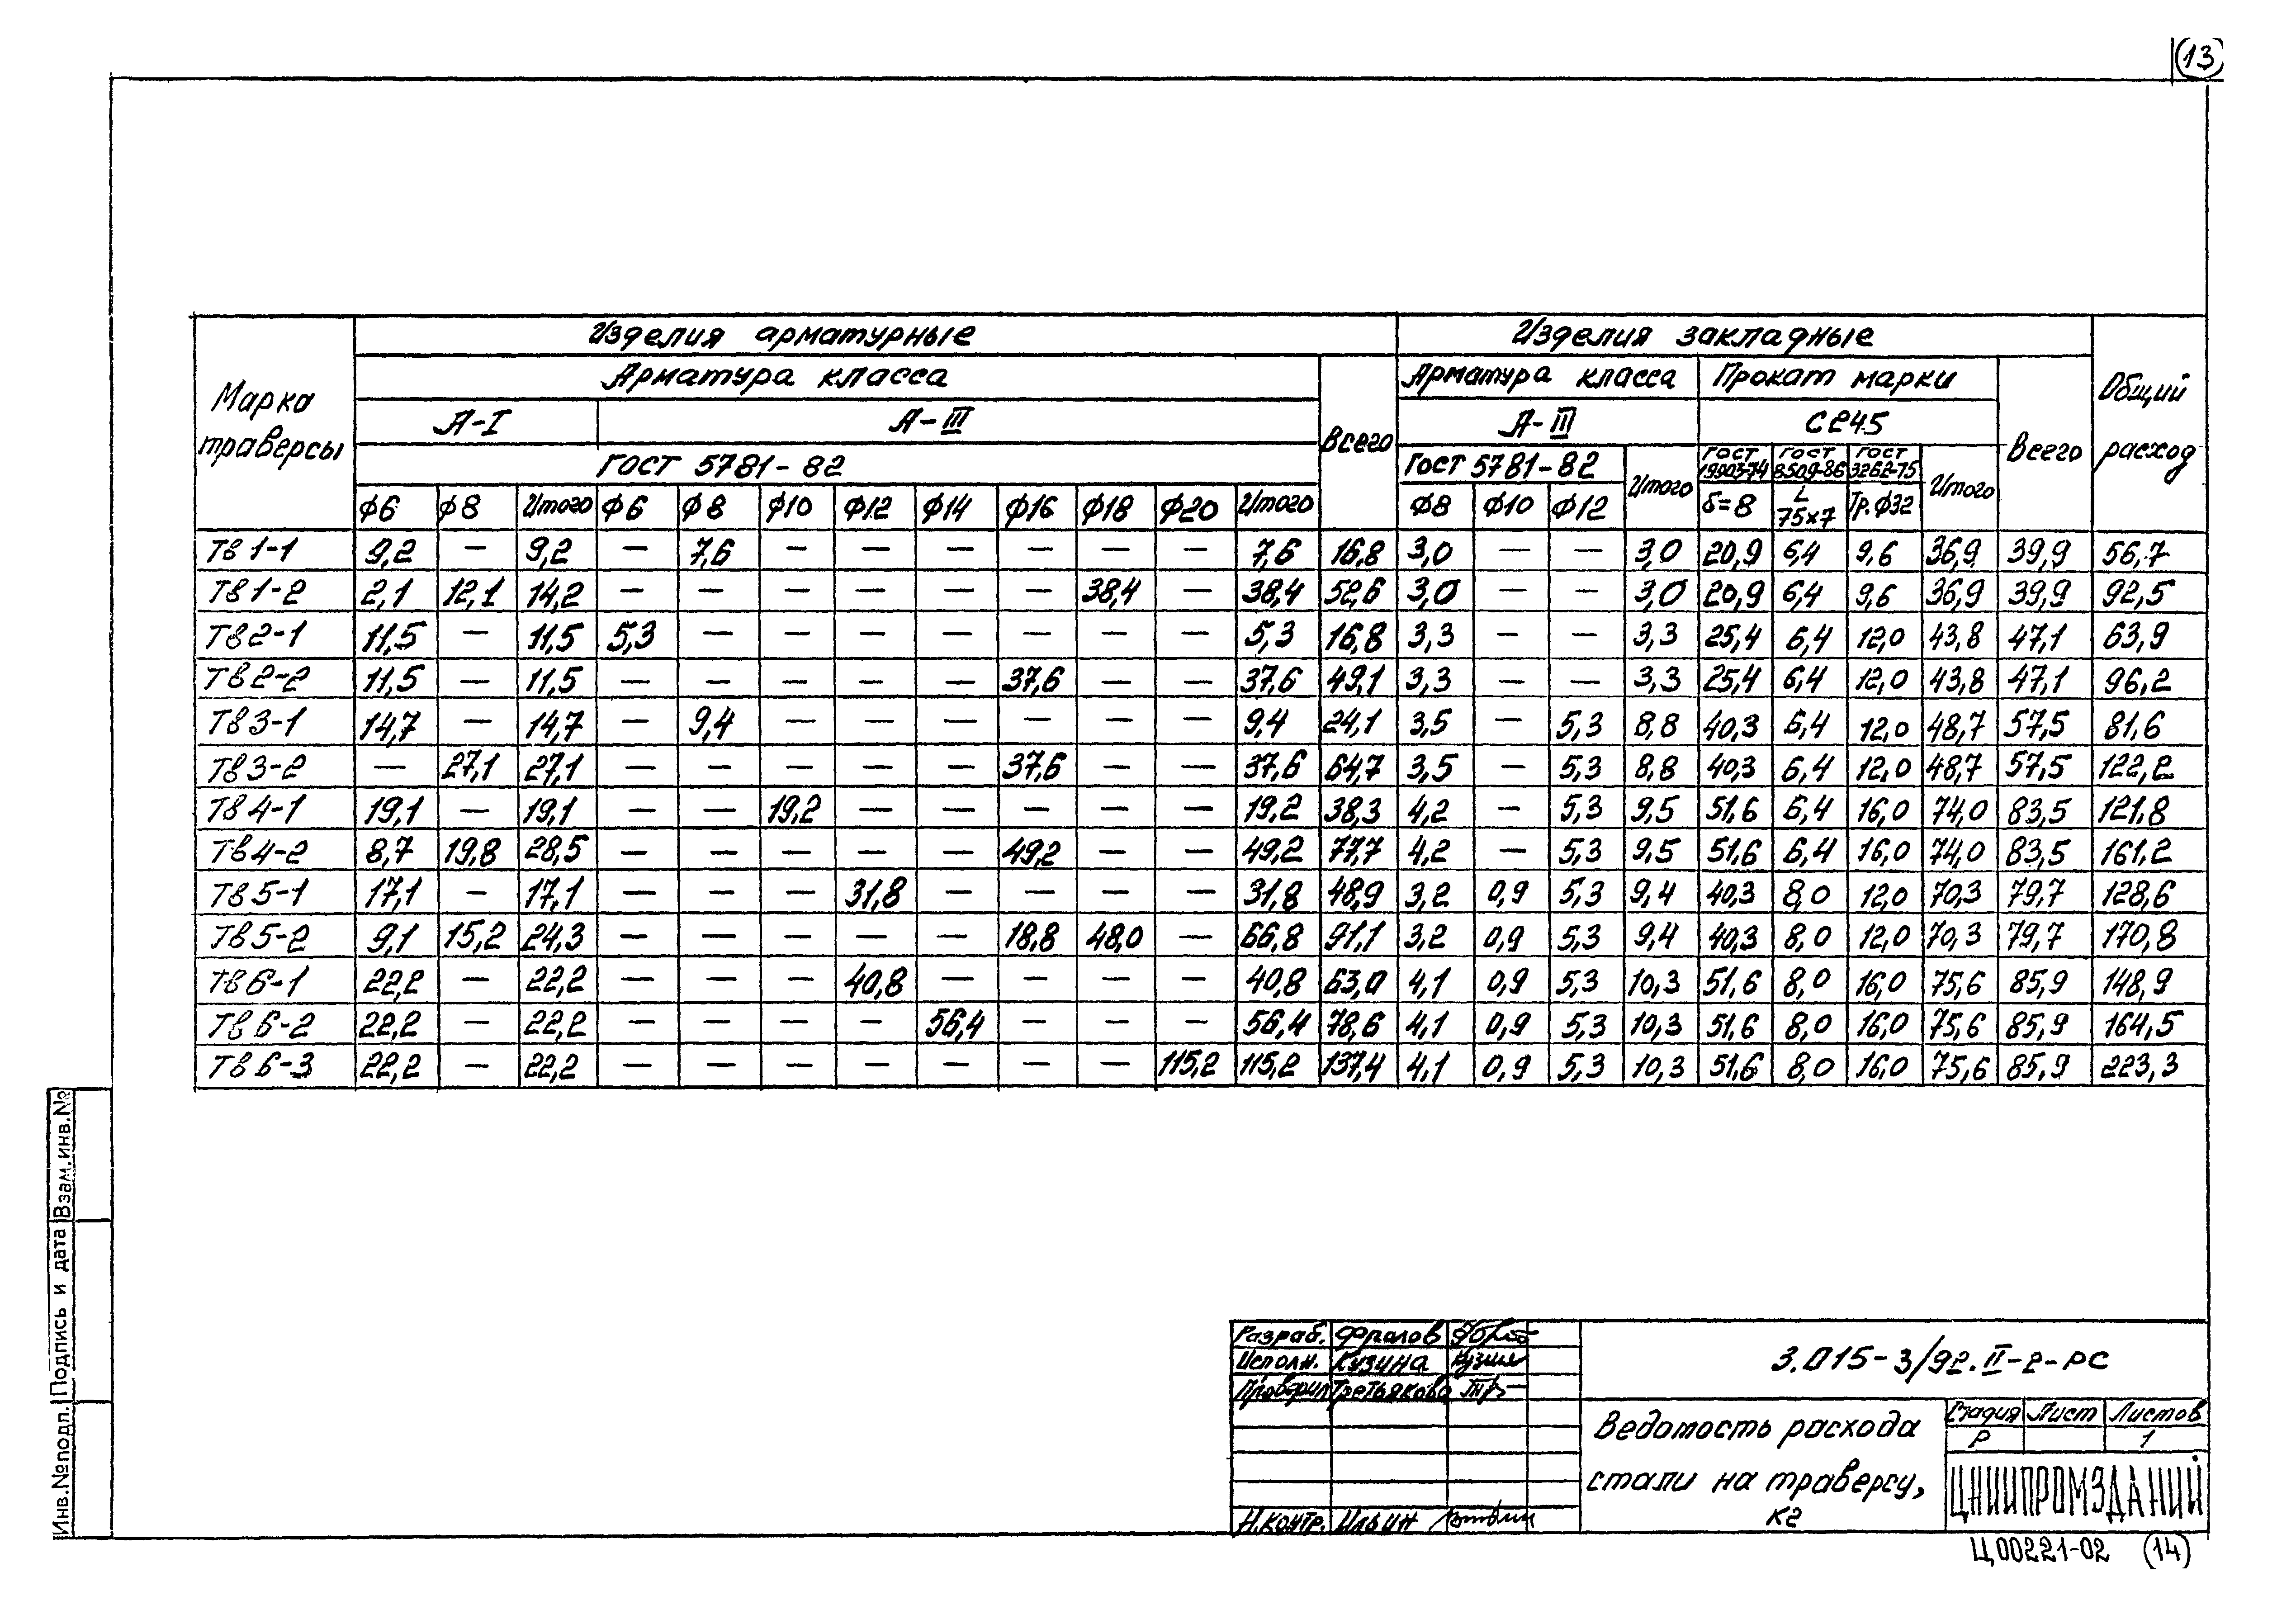 13
Марка траверсы | Изделия арматурные | Изделия закладные | Общий расход
Арматура класса | Всего | Арматура класса | Прокат марки | Всего
А-I | А-III | А-III | С245
ГОСТ 5781-82 | ГОСТ 5781-82 | Итого | ГОСТ 19903-74 | ГОСТ 8509-86 | ГОСТ 3262-75 | Итого
Ф6 | Ф8 | Итого | Ф6 | Ф8 | Ф10 | Ф12 | Ф14 | Ф16 | Ф18 | Ф20 | Итого | Ф8 | Ф10 | Ф12 | δ=8 | L 75×7 | Тр.Ф32
Тв 1-1 | 9,2 | — | 9,2 | — | 7,6 | — | — | — | — | — | — | 7,6 | 16,8 | 3,0 | — | — | 3,0 | 20,9 | 6,4 | 9,6 | 36,9 | 39,9 | 56,7
Тв 1-2 | 2,1 | 12,1 | 14,2 | — | — | — | — | — | — | 38,4 | — | 38,4 | 52,6 | 3,0 | — | — | 3,0 | 20,9 | 6,4 | 9,6 | 36,9 | 39,9 | 92,5
Тв 2-1 | 11,5 | — | 11,5 | 5,3 | — | — | — | — | — | — | — | 5,3 | 16,8 | 3,3 | — | — | 3,3 | 25,4 | 6,4 | 12,0 | 43,8 | 47,1 | 63,9
Тв 2-2 | 11,5 | — | 11,5 | — | — | — | — | — | 37,6 | — | — | 37,6 | 49,1 | 3,3 | — | — | 3,3 | 25,4 | 6,4 | 12,0 | 43,8 | 47,1 | 96,2
Тв 3-1 | 14,7 | — | 14,7 | — | 9,4 | — | — | — | — | — | — | 9,4 | 24,1 | 3,5 | — | 5,3 | 8,8 | 40,3 | 6,4 | 12,0 | 48,7 | 57,5 | 81,6
Тв 3-2 | — | 27,1 | 27,1 | — | — | — | — | — | 37,6 | — | — | 37,6 | 64,7 | 3,5 | — | 5,3 | 8,8 | 40,3 | 6,4 | 12,0 | 48,7 | 57,5 | 122,2
Тв 4-1 | 19,1 | — | 19,1 | — | — | 19,2 | — | — | — | — | — | 19,2 | 38,3 | 4,2 | — | 5,3 | 9,5 | 51,6 | 6,4 | 16,0 | 74,0 | 83,5 | 121,8
Тв 4-2 | 8,7 | 19,8 | 28,5 | — | — | — | — | — | 49,2 | — | — | 49,2 | 77,7 | 4,2 | — | 5,3 | 9,5 | 51,6 | 6,4 | 16,0 | 74,0 | 83,5 | 161,2
Тв 5-1 | 17,1 | — | 17,1 | — | — | — | 31,8 | — | — | — | — | 31,8 | 48,9 | 3,2 | 0,9 | 5,3 | 9,4 | 40,3 | 8,0 | 12,0 | 70,3 | 79,7 | 128,6
Тв 5-2 | 9,1 | 15,2 | 24,3 | — | — | — | — | — | 18,8 | 48,0 | — | 66,8 | 91,1 | 3,2 | 0,9 | 5,3 | 9,4 | 40,3 | 8,0 | 12,0 | 70,3 | 79,7 | 170,8
Тв 6-1 | 22,2 | — | 22,2 | — | — | — | 40,8 | — | — | — | — | 40,8 | 63,0 | 4,1 | 0,9 | 5,3 | 10,3 | 51,6 | 8,0 | 16,0 | 75,6 | 85,9 | 148,9
Тв 6-2 | 22,2 | — | 22,2 | — | — | — | — | 56,4 | — | — | — | 56,4 | 78,6 | 4,1 | 0,9 | 5,3 | 10,3 | 51,6 | 8,0 | 16,0 | 75,6 | 85,9 | 164,5
Тв 6-3 | 22,2 | — | 22,2 | — | — | — | — | — | — | — | 115,2 | 115,2 | 137,4 | 4,1 | 0,9 | 5,3 | 10,3 | 51,6 | 8,0 | 16,0 | 75,6 | 85,9 | 223,3
Взам.инв.№
Подпись и дата
Инв.№подл.
Разраб. Фролов
Исполн. Кузина
Проверил Третьякова
Н.контр. Ильин
3.015-3/92.II-2-РС
Ведомость расхода
стали на траверсу,
кг
Стадия Лист Листов
Р 1
ЦНИИПРОМЗДАНИЙ
Ц00221-02 (14)